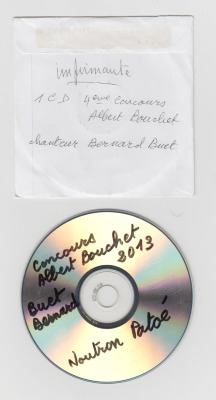 imprimante
1 CD 4ème Concours
Albert Bouchet
chanteur Bernard Buet
Concours
Albert Bouchet
2013
Buet
Bernard
Noutron Patoé